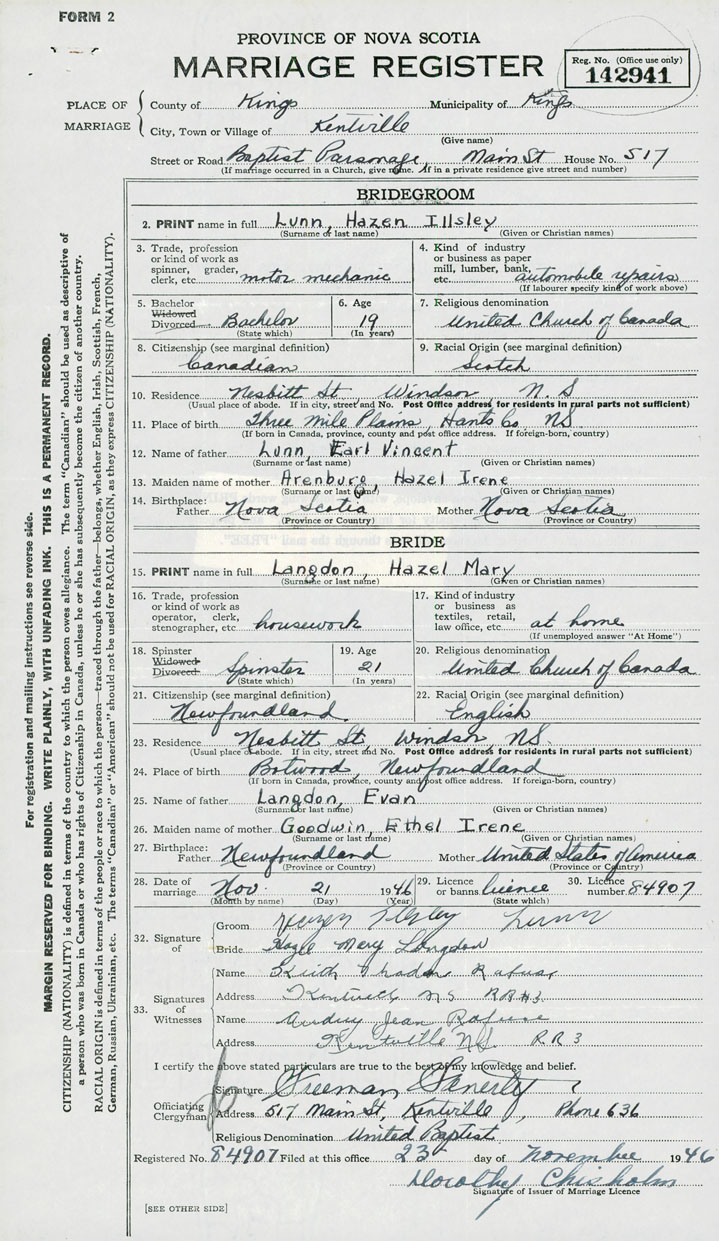 FORM 2
PROVINCE OF NOVA SCOTIA
MARRIAGE REGISTER
Reg. No. (Office use only)
142941
PLACE OF MARRIAGE
County of Kings Municipality of Kings
City, Town or Village of Kentville
(Give name)
Street or Road Baptist Parsonage, Main St House No. 517
(If marriage occurred in a Church, give name. If in a private residence give street and number)
BRIDEGROOM
2. PRINT name in full Lunn, Hazen Illsley
(Surname or last name) (Given or Christian names)
3. Trade, profession or kind of work as spinner, grader, clerk, etc. motor mechanic
4. Kind of industry or business as paper mill, lumber, bank, etc. automobile repairs
(If labourer specify kind of work above)
5. Bachelor Widowed Divorced Bachelor
(State which)
6. Age 19
(In years)
7. Religious denomination
United Church of Canada
8. Citizenship (see marginal definition)
Canadian
9. Racial Origin (see marginal definition)
Scotch
10. Residence Nesbitt St Windsor N.S
(Usual place of abode. If in city, street and No. Post Office address for residents in rural parts not sufficient)
11. Place of birth Three Mile Plains, Hants Co NS
(If born in Canada, province, county and post office address. If foreign-born, country)
12. Name of father Lunn, Earl Vincent
(Surname or last name) (Given or Christian names)
13. Maiden name of mother Arenburg, Hazel Irene
(Surname or last name) (Given or Christian names)
14. Birthplace: Father Nova Scotia Mother Nova Scotia
(Province or Country) (Province or Country)
BRIDE
15. PRINT name in full Langdon, Hazel Mary
(Surname or last name) (Given or Christian names)
16. Trade, profession or kind of work as operator, clerk, stenographer, etc. housework
17. Kind of industry or business as textiles, retail, law office, etc. at home
(If unemployed answer "At Home")
18. Spinster Widowed Divorced Spinster
(State which)
19. Age 21
(In years)
20. Religious denomination
United Church of Canada
21. Citizenship (see marginal definition)
Newfoundland
22. Racial Origin (see marginal definition)
English
23. Residence Nesbitt St, Windsor, NS.
(Usual place of abode. If in city, street and No. Post Office address for residents in rural parts not sufficient)
24. Place of birth Botwood, Newfoundland
(If born in Canada, province, county and post office address. If foreign-born, country)
25. Name of father Langdon, Evan
(Surname or last name) (Given or Christian names)
26. Maiden name of mother Goodwin, Ethel Irene
(Surname or last name) (Given or Christian names)
27. Birthplace: Father Newfoundland Mother United States of America
(Province or Country) (Province or Country)
28. Date of marriage Nov. 21 1946 29. Licence or banns licence 30. Licence number 84907
(Month by name) (Day) (Year) (State which)
32. Signature of
Groom Hazen Illsley Lunn
Bride Hazel Mary Langdon
33. Signatures of Witnesses
Name Keith Rafuse
Address Kentville NS RR#3
Name Audrey Jean Rafuse
Address Kentville NS RR 3
I certify the above stated particulars are true to the best of my knowledge and belief.
Officiating Clergyman
Signature Freeman Fenerty
Address 517 Main St, Kentville, Phone 636
Religious Denomination United Baptist
Registered No. 84907 Filed at this office 23 day of November 1946
Dorothy Chisholm
Signature of Issuer of Marriage Licence
[SEE OTHER SIDE]
For registration and mailing instructions see reverse side.
MARGIN RESERVED FOR BINDING. WRITE PLAINLY, WITH UNFADING INK. THIS IS A PERMANENT RECORD.
CITIZENSHIP (NATIONALITY) is defined in terms of the country to which the person owes allegiance. The term "Canadian" should be used as descriptive of
a person who was born in Canada or who has rights of Citizenship in Canada, unless he or she has subsequently become the citizen of another country.
RACIAL ORIGIN is defined in terms of the people or race to which the person—traced through the father—belongs, whether English, Irish, Scottish, French,
German, Russian, Ukrainian, etc. The terms "Canadian" or "American" should not be used for RACIAL ORIGIN, as they express CITIZENSHIP (NATIONALITY).